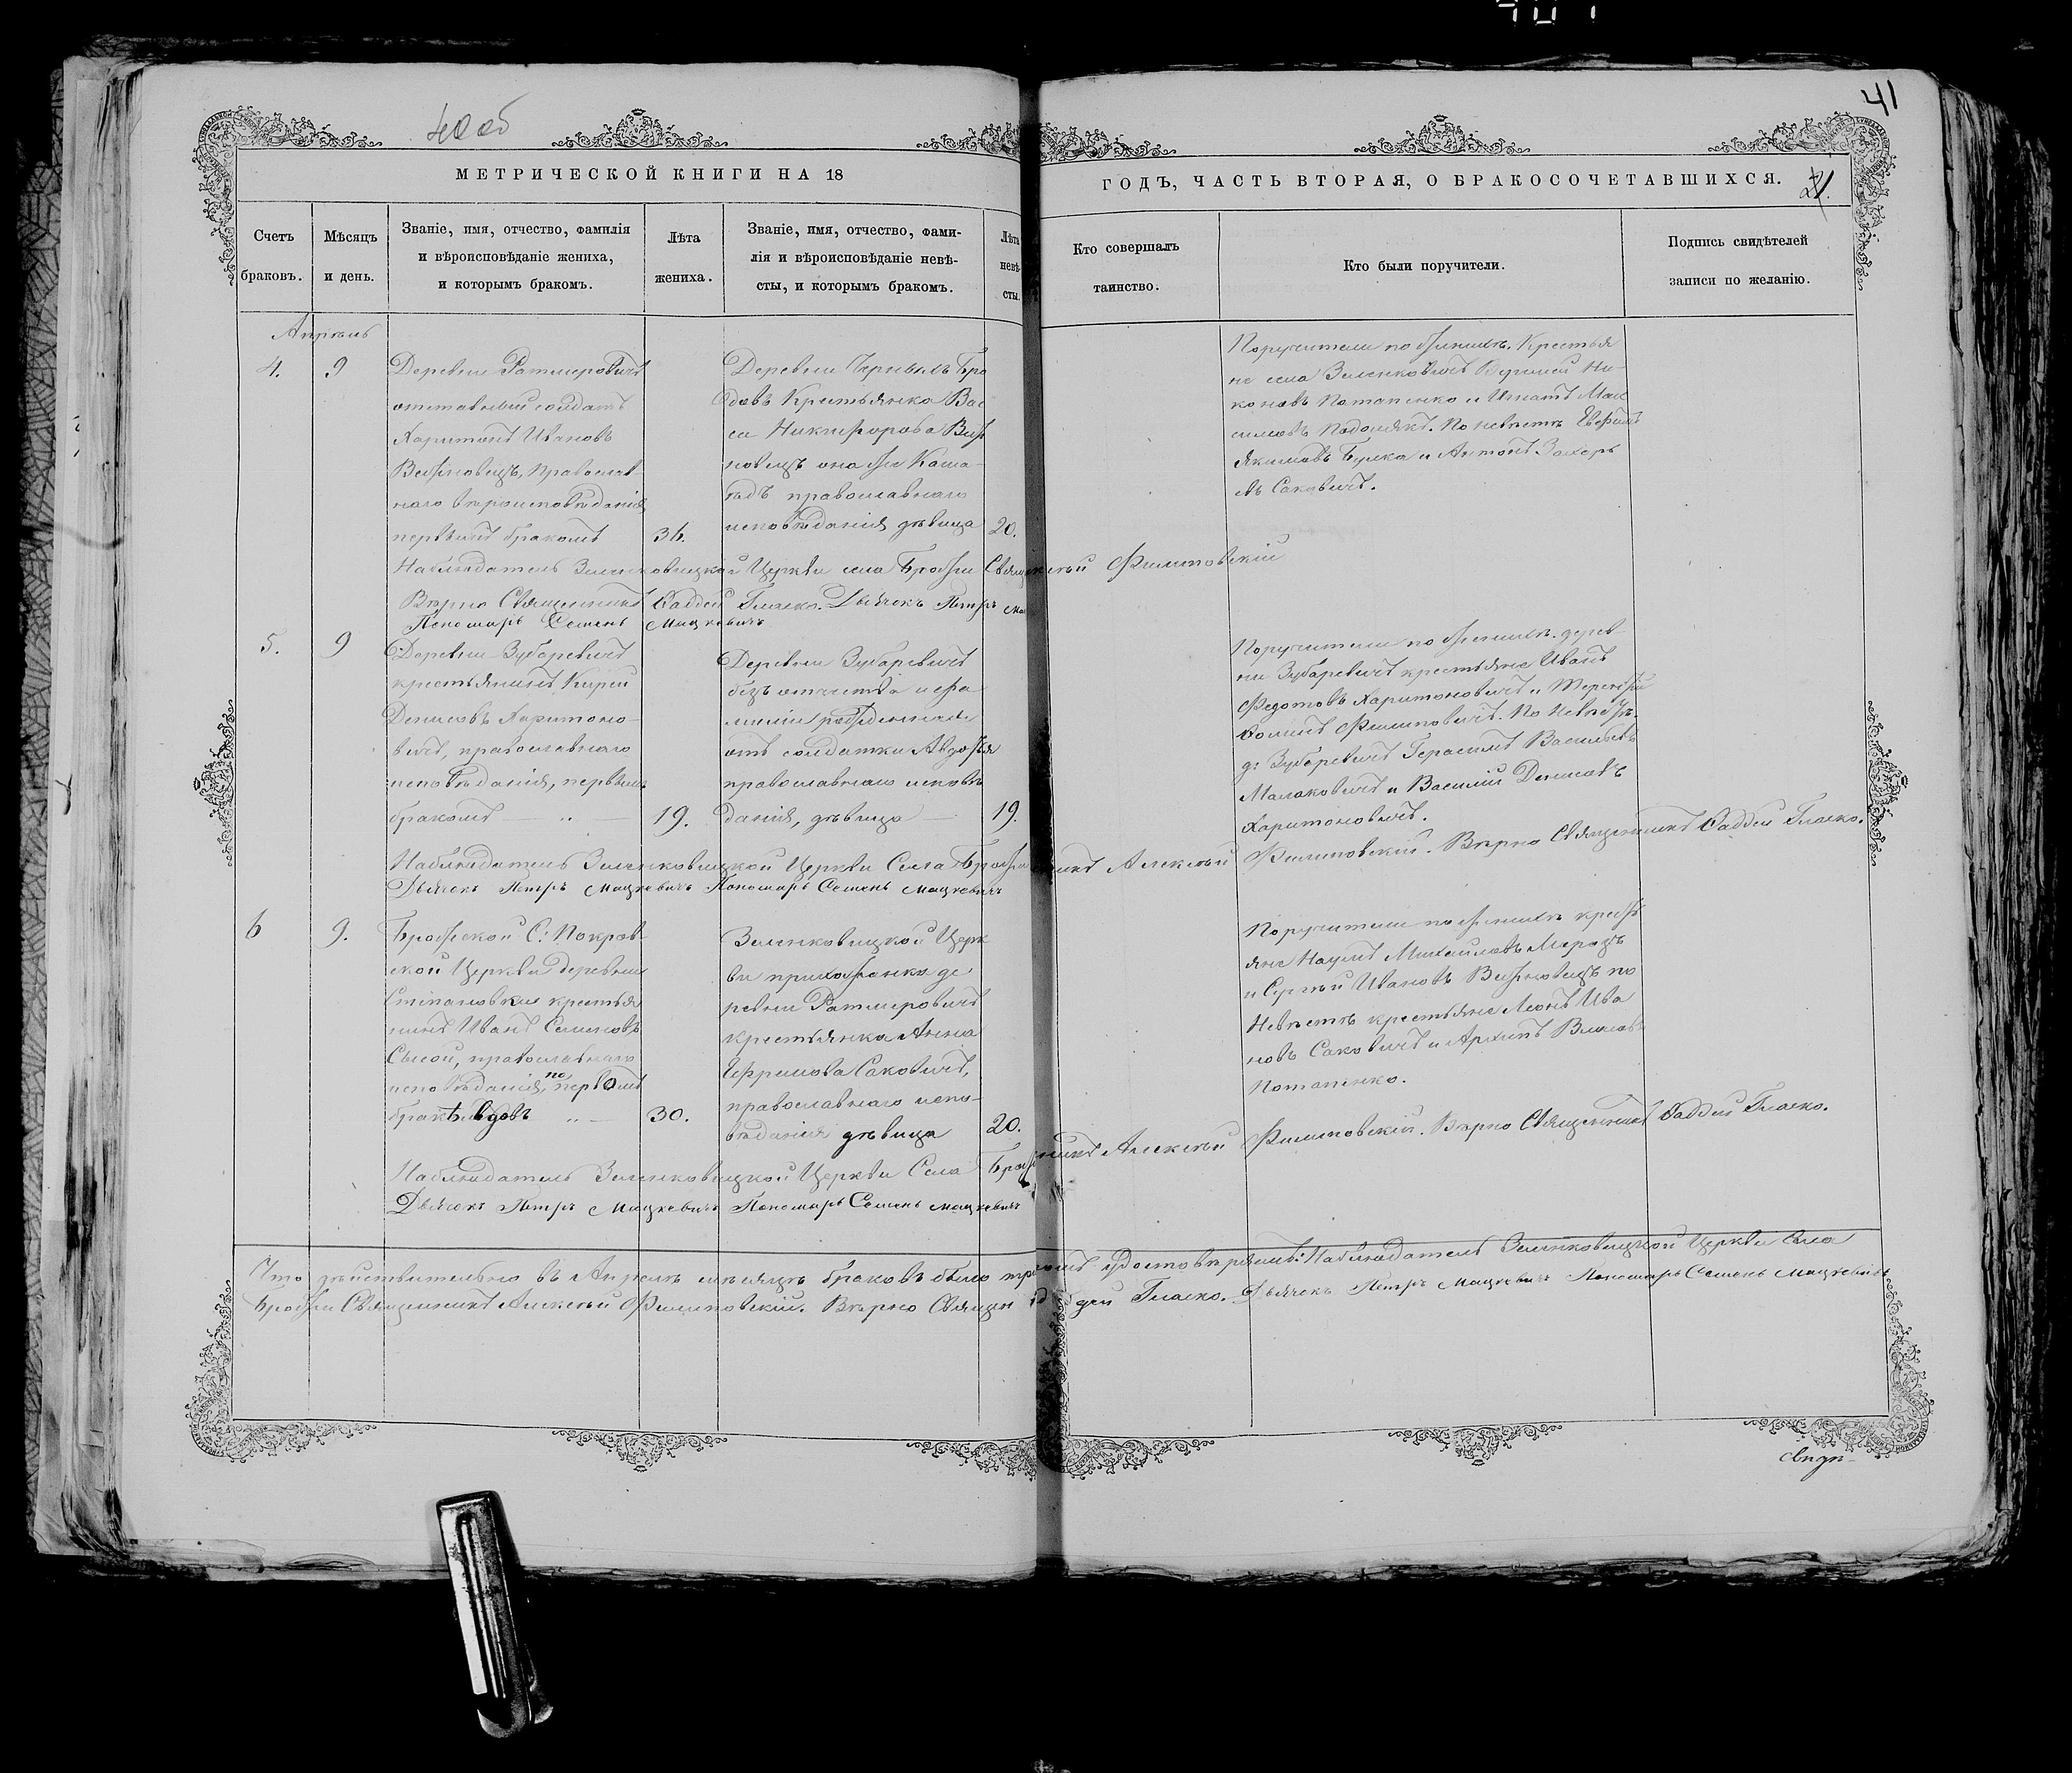 401
40 об
41
21.
МЕТРИЧЕСКОЙ КНИГИ НА 18
ГОДЪ, ЧАСТЬ ВТОРАЯ, О БРАКОСОЧЕТАВШИХСЯ.
Счетъ
браковъ.
Мѣсяцъ
и день.
Званіе, имя, отчество, фамилія
и вѣроисповѣданіе жениха,
и которымъ бракомъ.
Лѣта
жениха.
Званіе, имя, отчество, фами-
лія и вѣроисповѣданіе невѣ-
сты, и которымъ бракомъ.
Лѣта
невѣ-
сты.
Кто совершалъ
таинство.
Кто были поручители.
Подпись свидѣтелей
записи по желанію.
Апрѣль
4.
9
Деревни Ратмеровичъ
отставный солдатъ
Харитонъ Ивановъ
православ
наго вѣроисповѣданія
первымъ бракомъ
36.
Деревни Черныхъ Бро
довъ Крестьянка Вас
са Никифорова
новецъ она же
православнаго
исповѣданія дѣвица
20.
Поручители по женихѣ. Крестья
не села Зеленковичъ Ни-
коновъ Потапенко и Игнатъ Мак
симовъ Подолякъ. По невѣстѣ Евфимъ
Якимовъ Булка и Антонъ Захарь
евъ Саковичъ.
Наблюдатель Зеленковицкой Церкви села Брожи Филиповскій
Вѣрно Священникъ Фаддей Гласко. Дьячекъ Петръ
Пономарь Семенъ Мацкевичъ
5.
9
Деревни Зубаревичъ
крестьянинъ Кирей
Денисовъ Харитоно-
вичъ, православнаго
исповѣданія, первымъ
бракомъ — „ —
19.
Деревни Зубаревичъ
безъ отчества и фа
миліи рожденная
отъ солдатки Авдотья
православнаго исповѣ
данія, дѣвица —
19.
Поручители по женихѣ. дерев
ни Зубаревичъ крестьяне Иванъ
Федотовъ Харитоновичъ и Терентій
Фоминъ Филиповичъ. По невѣстѣ.
д. Зубаревичъ Герасимъ Васильевъ
Малаховичъ и Василій Денисовъ
Харитоновичъ.
Наблюдатель Зеленковицкой Церкви Села Брожи Алексѣй Филиповскій. Вѣрно Священникъ Фаддей Гласко.
Дьячекъ Петръ Мацкевичъ Пономарь Семенъ Мацкевичъ
6
9.
Брожской С: Покров-
ской Церкви деревни
Степановки крестья
нинъ Иванъ Семеновъ
Сысой, православнаго
исповѣданія, по первомъ
бракѣ вдовъ „ —
30.
Зеленковицкой Церк
ви прихожанка де
ревни Ратмеровичъ
крестьянка Анна
Ефримова Саковичъ,
православнаго испо-
вѣданія дѣвица
20.
Поручители по женихѣ кресть
яне Наумъ Михайловъ Морозъ
и Сергѣй Ивановъ по
Невѣстѣ крестьяне Леонъ Ива
новъ Саковичъ и Архипъ Власовъ
Потапенко.
Наблюдатель Зеленковицкой Церкви Села Алексѣй Филиповскій. Вѣрно Священникъ Фаддей Гласко.
Дьячекъ Петръ Мацкевичъ Пономарь Семенъ Мацкевичъ
Что дѣйствительно въ Апрелѣ мѣсяцѣ браковъ было три удостовѣряемъ: Наблюдатель Зеленковицкой Церкви Села
Брожи Священникъ Алексѣй Филиповскій. Вѣрно Гласко. Дьячекъ Петръ Мацкевичъ Пономарь Семенъ Мацкевичъ
свидѣ-